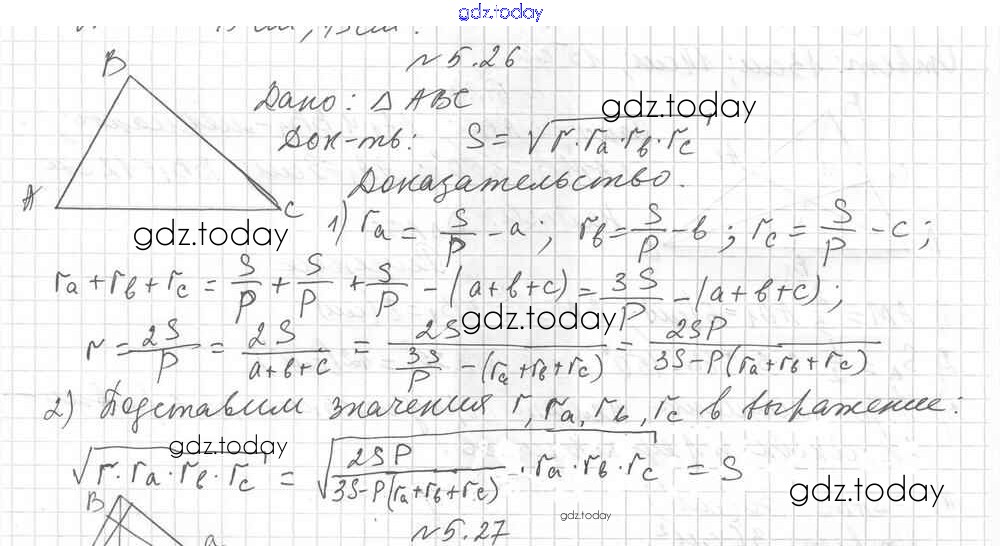 gdz.today
№5.26
B
Дано: △ABC
gdz.today
Док-ть: S = √(r·rₐ·rв·rс)
Доказательство.
A
C
gdz.today
1) rₐ = S/P - a; rв = S/P - в; rс = S/P - c;
rₐ + rв + rс = S/P + S/P + S/P - (a+в+c) = 3S/P - (a+в+c);
gdz.today
r = 2S/P = 2S/(a+в+c) = 2S/(3S/P - (rₐ+rв+rс)) = 2SP/(3S-P(rₐ+rв+rс))
2) Подставим значения r, rₐ, rв, rс в выражение:
gdz.today
√(r·rₐ·rв·rс) = √(2SP/(3S-P(rₐ+rв+rс)) · rₐ·rв·rс) = S
gdz.today
B
gdz.today
№5.27